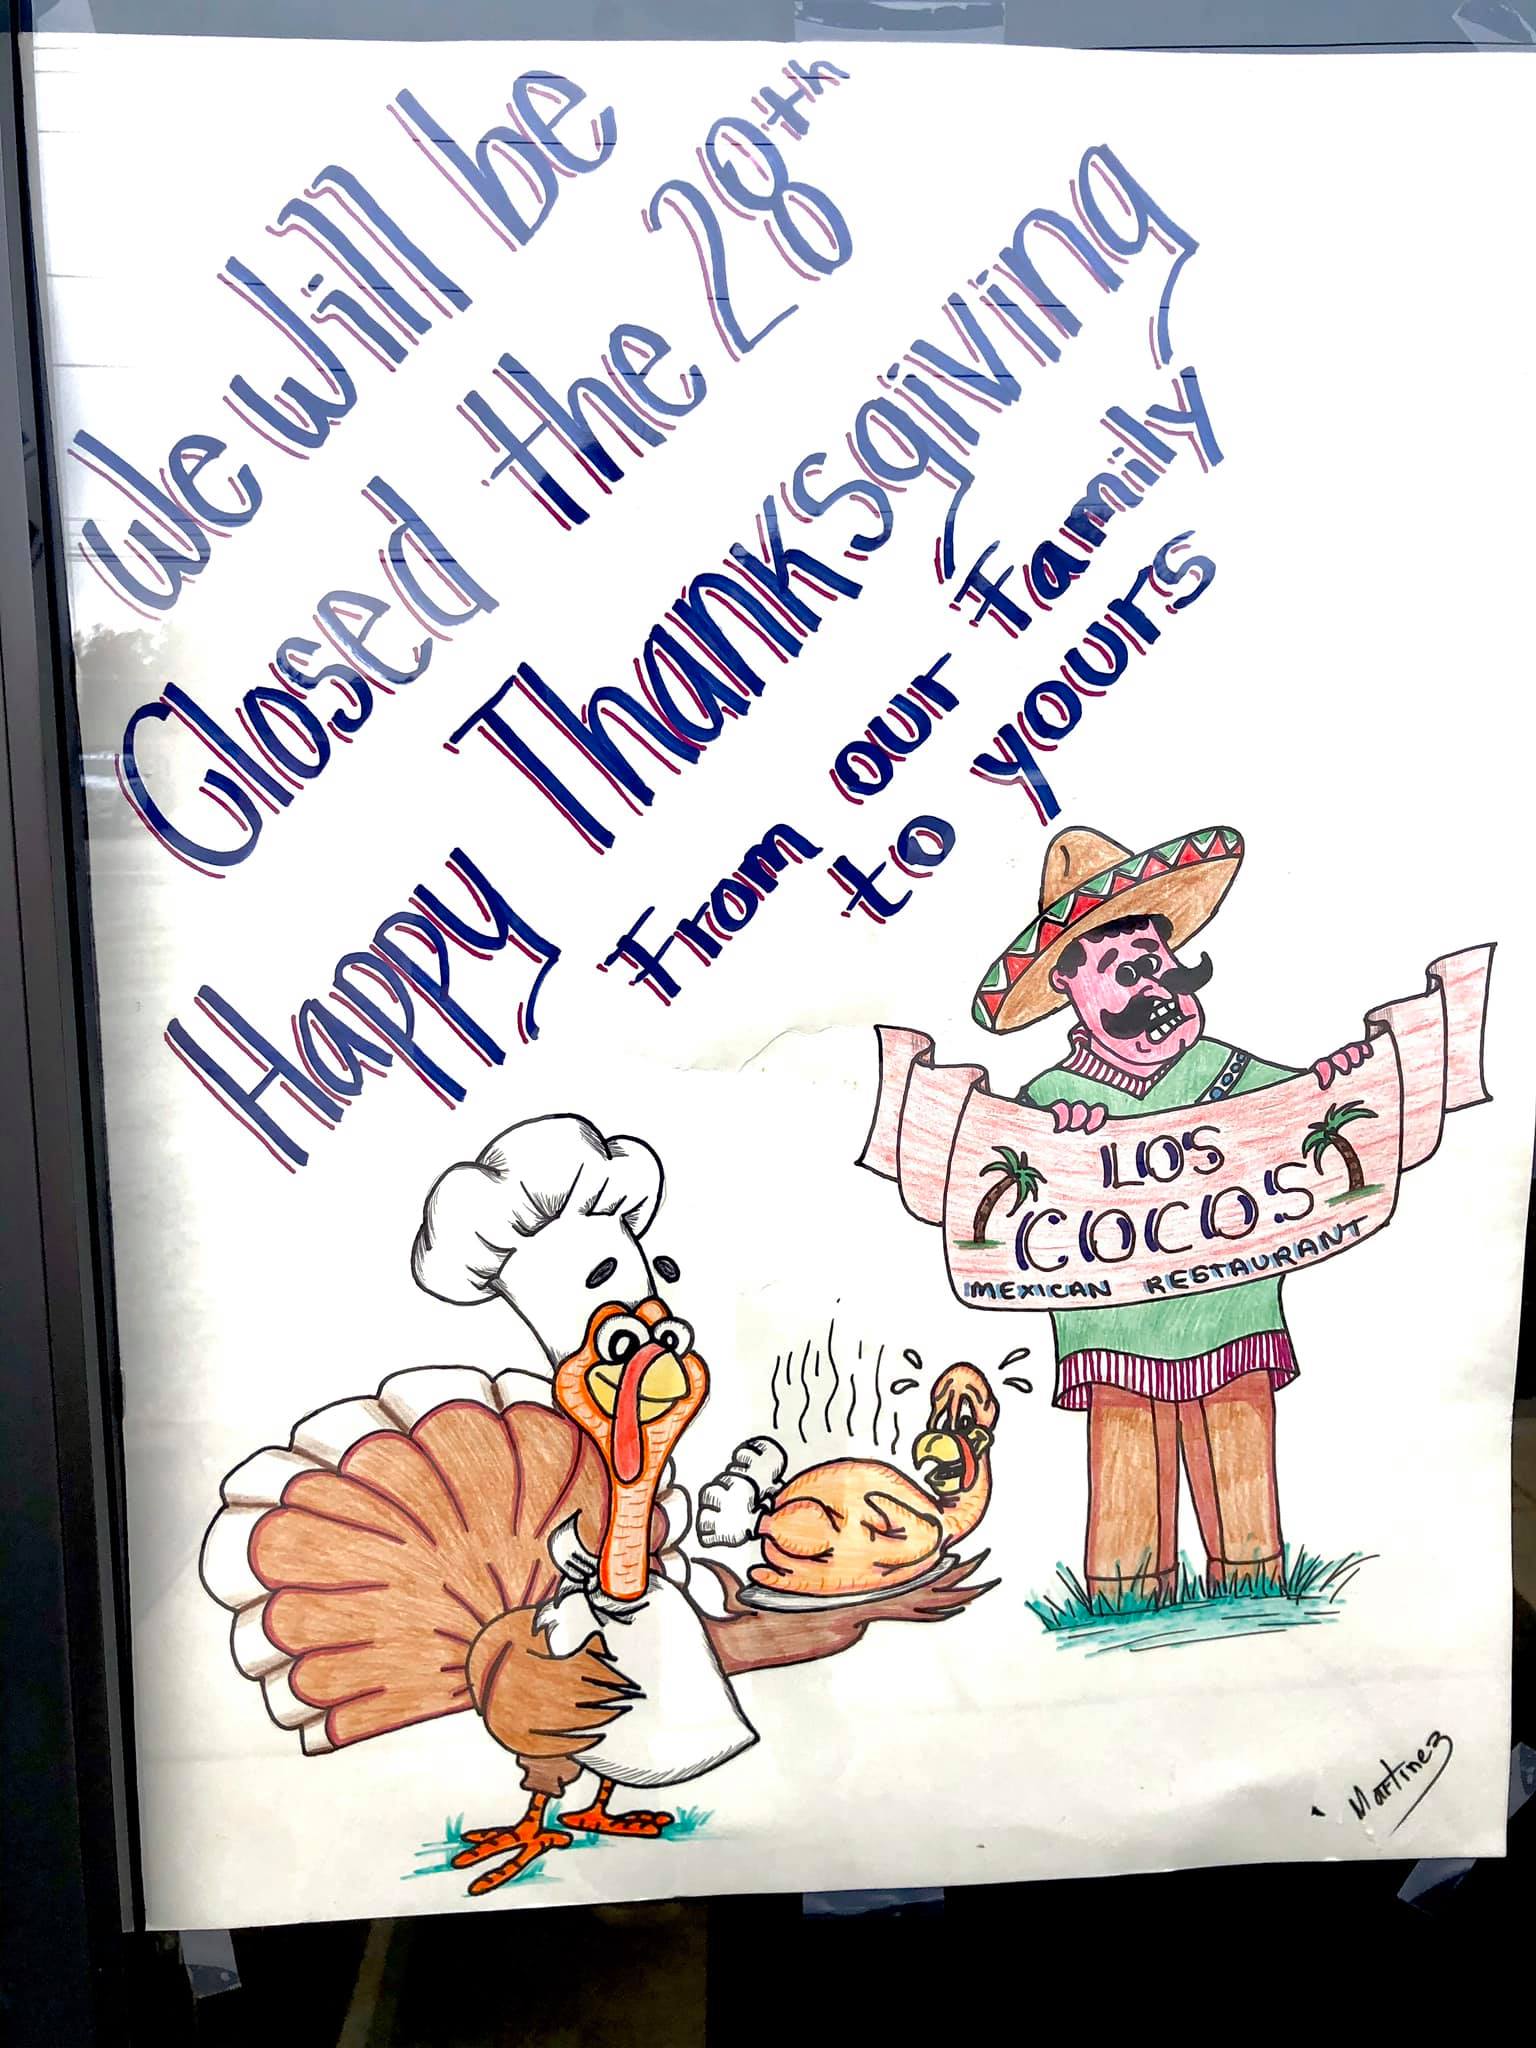 We Will be
Closed the 28th
Happy Thanksgiving
From our Family
to yours
LOS
COCOS
MEXICAN RESTAURANT
Martinez